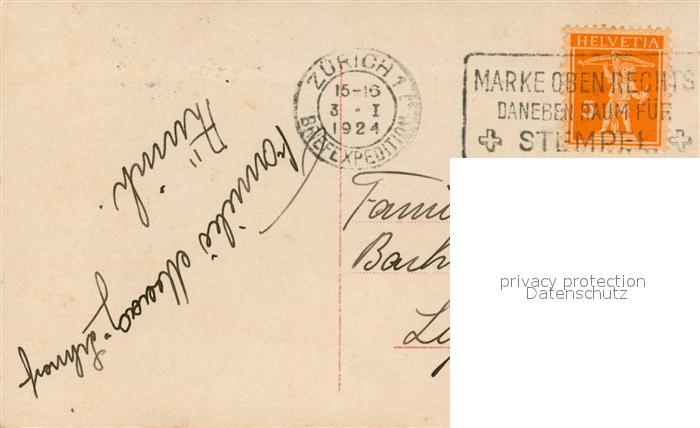 ZÜRICH 1
15-16
3 · I
1924
BRIEFEXPEDITION
HELVETIA
5
MARKE OBEN RECHTS
DANEBEN RAUM FÜR
STEMPEL
Zürich.
Familie
Fami
Bach
privacy protection
Datenschutz